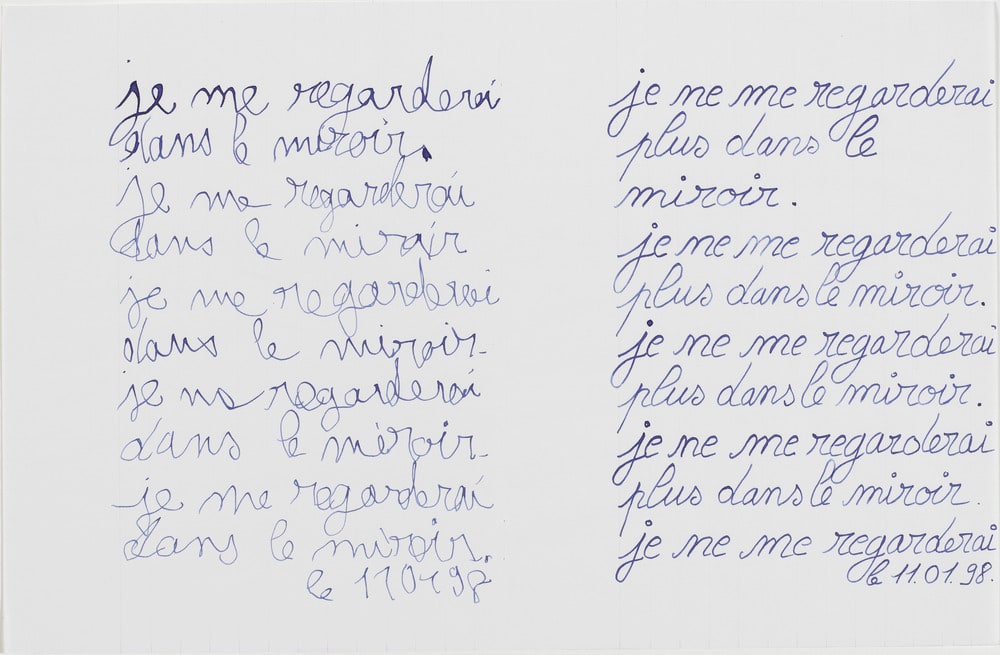 je me regarderai
dans le miroir.
je me regarderai
dans le miroir
je me regarderai
dans le miroir.
je me regarderai
dans le miroir.
je me regarderai
dans le miroir.
le 11 01 98
je ne me regarderai
plus dans le
miroir.
je ne me regarderai
plus dans le miroir.
je ne me regarderai
plus dans le miroir.
je ne me regarderai
plus dans le miroir.
je ne me regarderai
le 11.01.98.